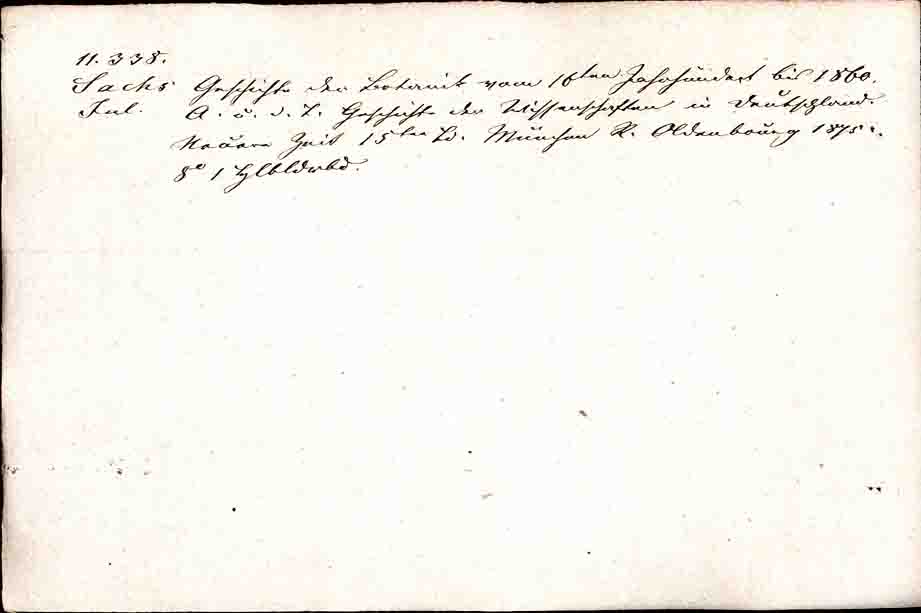 11.338.
Sachs Geschichte der Botanik vom 16ten Jahrhundert bis 1860.
Jul. A. u. d. T. Geschichte der Wissenschaften in Deutschland.
Neuere Zeit 15ter Bd. München R. Oldenbourg 1875.
8° 1 Hlbldrbd.